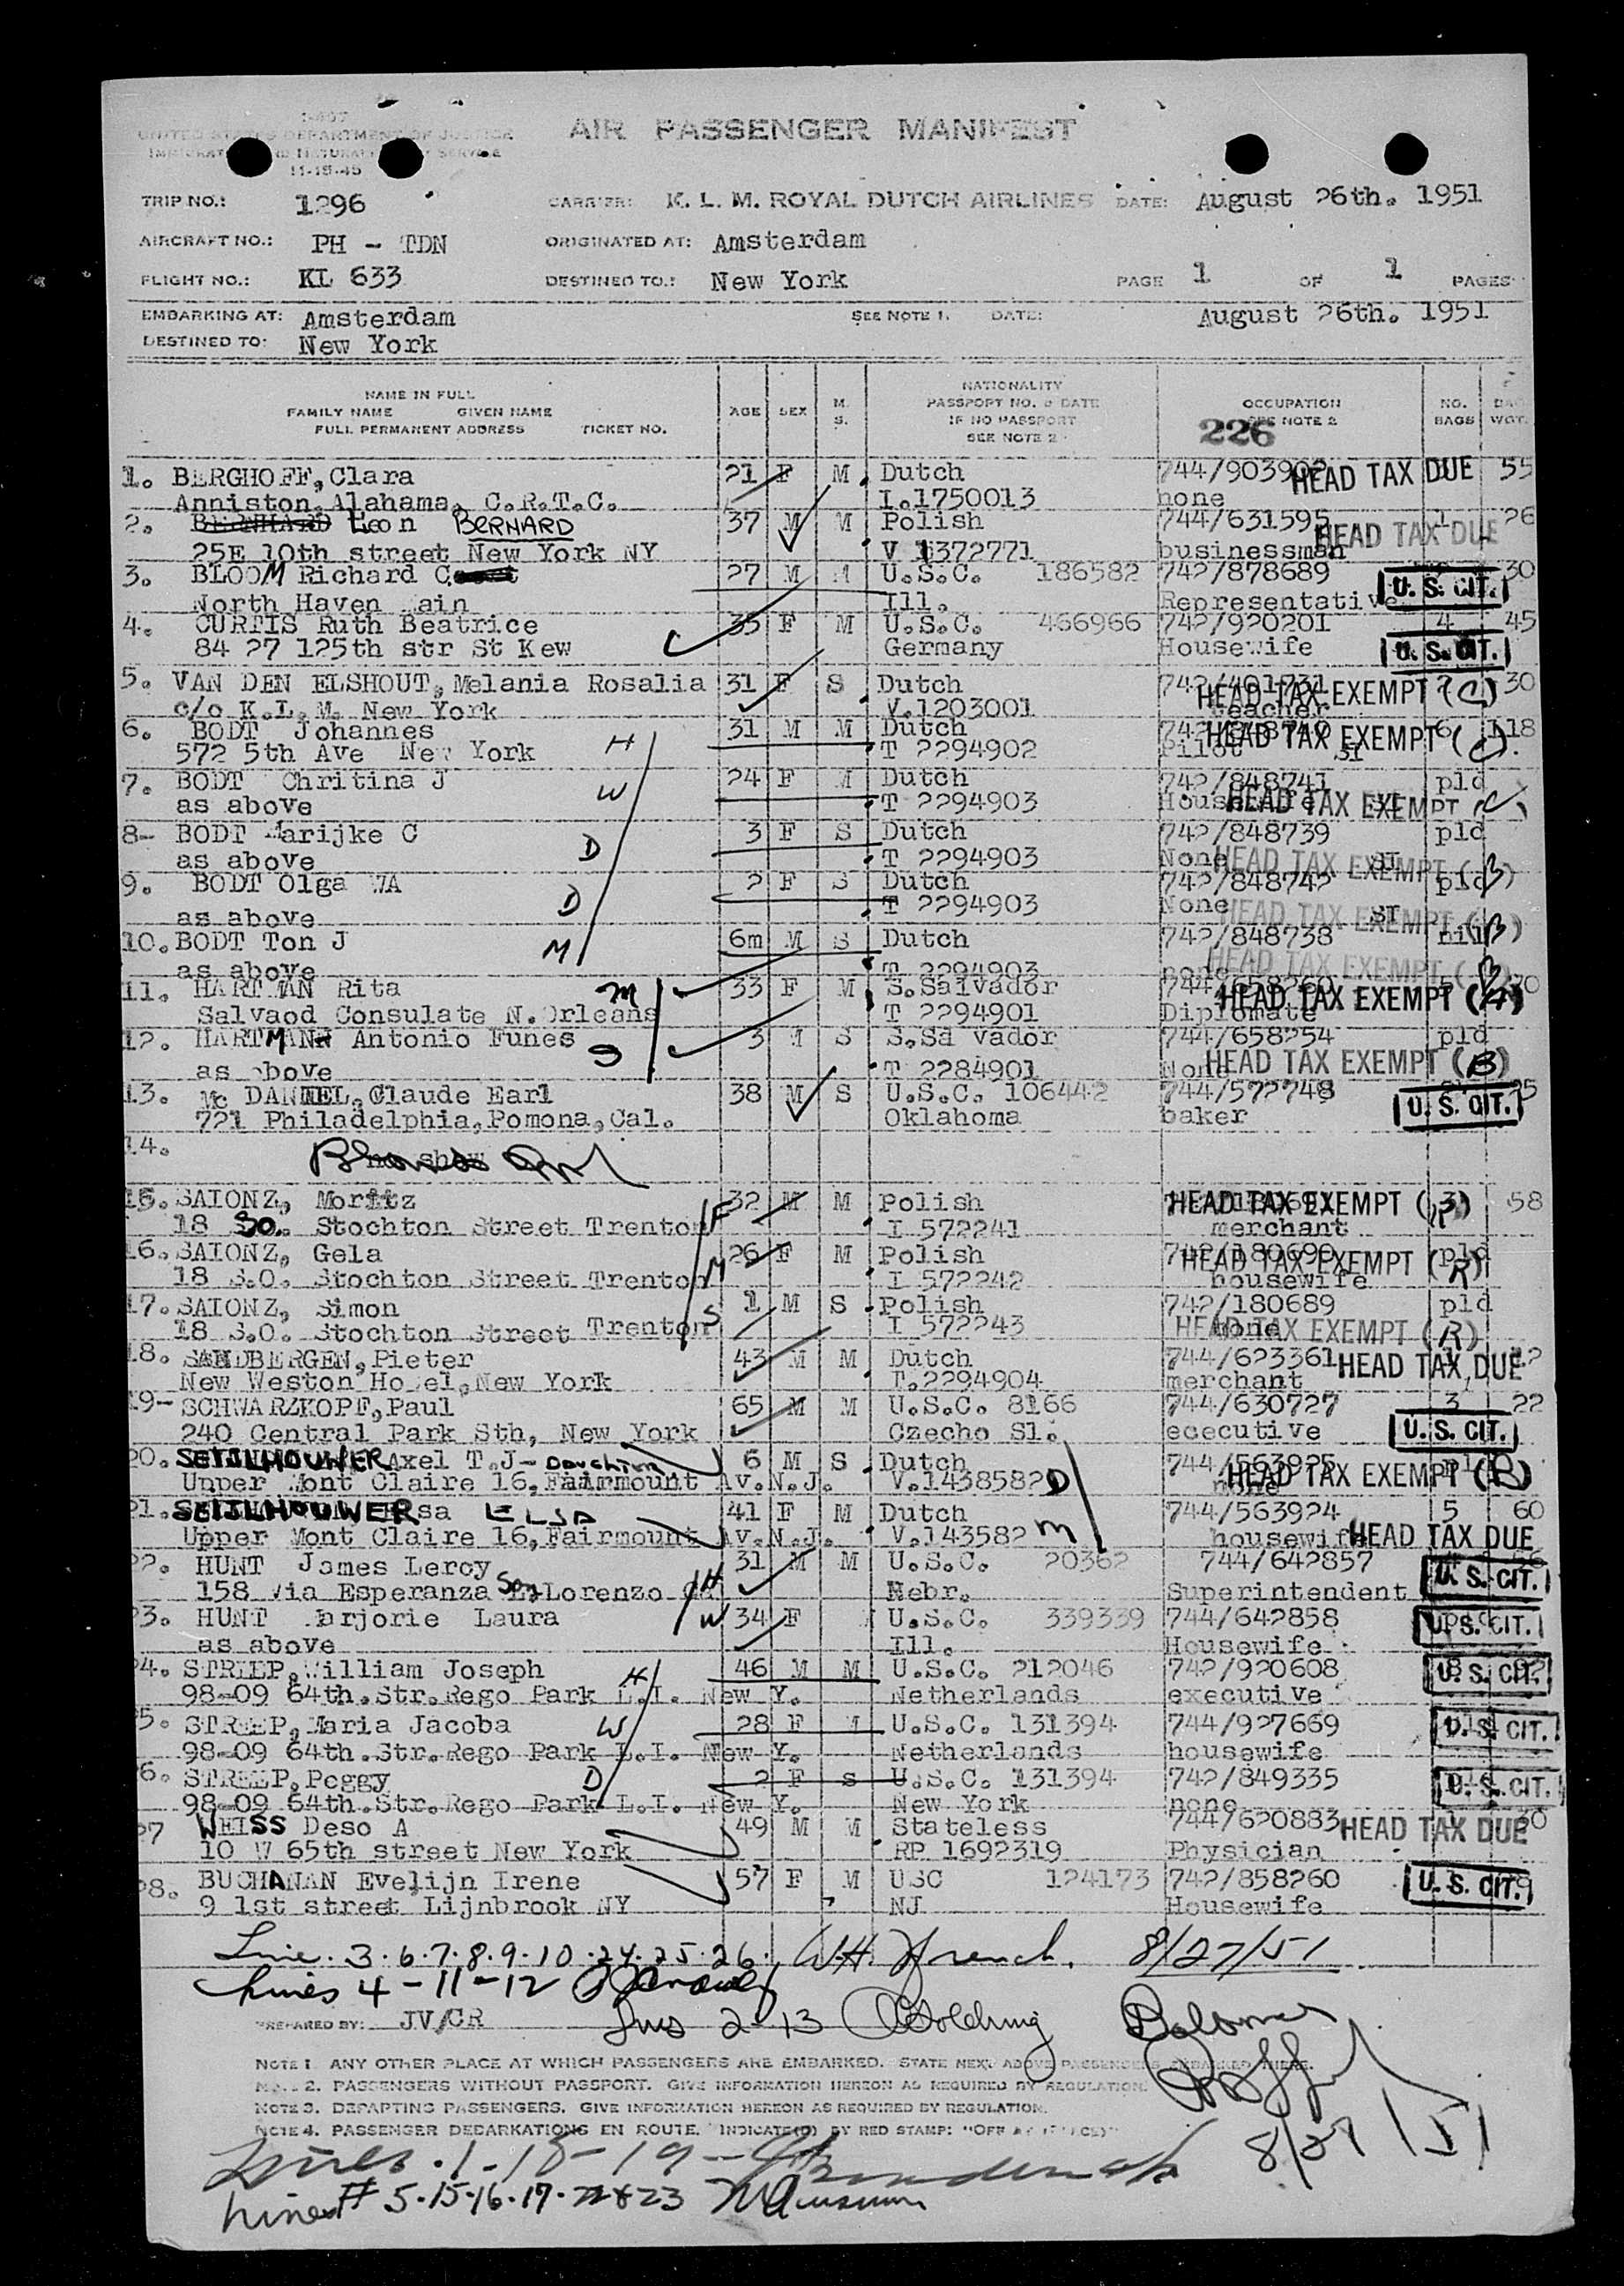 I-407
UNITED STATES DEPARTMENT OF JUSTICE
11-15-45
AIR PASSENGER MANIFEST
TRIP NO.: 1296 CARRIER: K. L. M. ROYAL DUTCH AIRLINES DATE: August 26th. 1951
AIRCRAFT NO.: PH - TDN ORIGINATED AT: Amsterdam
FLIGHT NO.: KL 633 DESTINED TO.: New York PAGE 1 OF 1 PAGES
EMBARKING AT: Amsterdam SEE NOTE 1. DATE: August 26th. 1951
DESTINED TO: New York
NAME IN FULL
FAMILY NAME GIVEN NAME
FULL PERMANENT ADDRESS TICKET NO.
AGE SEX M. S.
NATIONALITY
PASSPORT NO. & DATE
IF NO PASSPORT
SEE NOTE 2
OCCUPATION
NOTE 2
226
NO. BAGS
WGT.
1. BERGHOFF, Clara 21 F M Dutch 744/903902 HEAD TAX DUE 55
Anniston, Alahama, C.R.T.C. I.1750013 none
2. BERNHARD Leon BERNARD 37 M M Polish 744/631595 1 26
25E 10th street New York NY V 1372771 businessman HEAD TAX DUE
3. BLOOM Richard C 27 M M U.S.C. 186582 742/878689 30
North Haven Main Ill. Representative U. S. CIT.
4. CURTIS Ruth Beatrice 35 F M U.S.C. 466966 742/920201 4 45
84 27 125th str St Kew Germany Housewife U. S. CIT.
5. VAN DEN ELSHOUT, Melania Rosalia 31 F S Dutch 742/401731 HEAD TAX EXEMPT (C) 30
c/o K.L.M. New York V.1203001 teacher
6. BODT Johannes 31 M M Dutch 6 118
572 5th Ave New York H T 2294902 Pilot SI HEAD TAX EXEMPT (C)
7. BODT Chritina J 24 F M Dutch 742/848741 pld
as above W T 2294903 HEAD TAX EXEMPT (C)
8- BODT Marijke C 3 F S Dutch 742/848739 pld
as above D T 2294903 None SI HEAD TAX EXEMPT (B)
9. BODT Olga WA 2 F S Dutch 742/848742 pld
as above D T 2294903 None SI HEAD TAX EXEMPT (B)
10. BODT Ton J 6m M S Dutch 742/848738 nil
as above M T 2294903 none HEAD TAX EXEMPT
11. HARTMAN Rita m 33 F M S.Salvador 744/658260 30
Salvaod Consulate N.Orleans T 2294901 Diplomate HEAD TAX EXEMPT (A)
12. HARTMANN Antonio Funes S 3 M S S.Sa vador 744/658254 pld
as above T 2284901 None HEAD TAX EXEMPT (B)
13. Mc DANIEL, Claude Earl 38 M S U.S.C. 106442 744/572748
721 Philadelphia, Pomona, Cal. Oklahoma baker U. S. CIT.
14.
15. SAIONZ, Moritz F 32 M M Polish HEAD TAX EXEMPT 3 58
18 So. Stochton Street Trenton I 572241 merchant
16. SAIONZ, Gela M 26 F M Polish 742/180690 pld
18 S.O. Stochton Street Trenton I 572242 housewife HEAD TAX EXEMPT (R)
17. SAIONZ, Simon S 1 M S Polish 742/180689 pld
18 S.O. Stochton Street Trenton I 572243 none HEAD TAX EXEMPT (R)
18. SANDBERGEN, Pieter 43 M M Dutch 744/623361 HEAD TAX DUE
New Weston Hotel, New York T.2294904 merchant
19- SCHWARZKOPF, Paul 65 M M U.S.C. 8166 744/630727 3 22
240 Central Park Sth, New York Czecho Sl. ececutive U. S. CIT.
20. SEIJLHOUWER Axel T.J- Daughter 6 M S Dutch 744/563925 HEAD TAX EXEMPT (B)
Upper Mont Claire 16, Fairmount Av.N.J. V.1438582 D none
21. SEIJLHOUWER Elsa ELSA 41 F M Dutch 744/563924 5 60
Upper Mont Claire 16, Fairmount Av.N.J. V.143582 m housewife HEAD TAX DUE
22. HUNT James Leroy H 31 M M U.S.C. 20362 744/642857
158 Via Esperanza San Lorenzo Ca Nebr. Superintendent U. S. CIT.
23. HUNT Marjorie Laura W 34 F U.S.C. 339339 744/642858
as above Ill. Housewife U. S. CIT.
24. STREEP, William Joseph H 46 M M U.S.C. 212046 742/920608
98-09 64th.Str.Rego Park L.I. New Y. Netherlands executive U. S. CIT.
25. STREEP, Maria Jacoba W 28 F M U.S.C. 131394 744/927669
98-09 64th.Str.Rego Park L.I. New Y. Netherlands housewife U. S. CIT.
26. STREEP, Peggy D 2 F s U.S.C. 131394 742/849335
98-09 64th.Str.Rego Park L.I. New Y. New York none U. S. CIT.
27 WEISS Deso A 49 M M Stateless 744/620883 HEAD TAX DUE 30
10 W 65th street New York RP 1692319 Physician
28. BUCHANAN Evelijn Irene 57 F M USC 124173 742/858260
9 1st street Lijnbrook NY NJ Housewife U. S. CIT.
Line. 3.6.7.8.9.10.24.25.26. W.H. French. 8/27/51
Lines 4-11-12
PREPARED BY: JV/CR Lns 2-13
NOTE 1. ANY OTHER PLACE AT WHICH PASSENGERS ARE EMBARKED. STATE NEXT ABOVE PASSENGERS EMBARKED THERE.
NOTE 2. PASSENGERS WITHOUT PASSPORT. GIVE INFORMATION HEREON AS REQUIRED BY REGULATION.
NOTE 3. DEPARTING PASSENGERS. GIVE INFORMATION HEREON AS REQUIRED BY REGULATION.
NOTE 4. PASSENGER DEBARKATIONS EN ROUTE. INDICATE(D) BY RED STAMP:
8/27/51
Lines .1-18-19-
Lines # 5.15.16.17.22&23